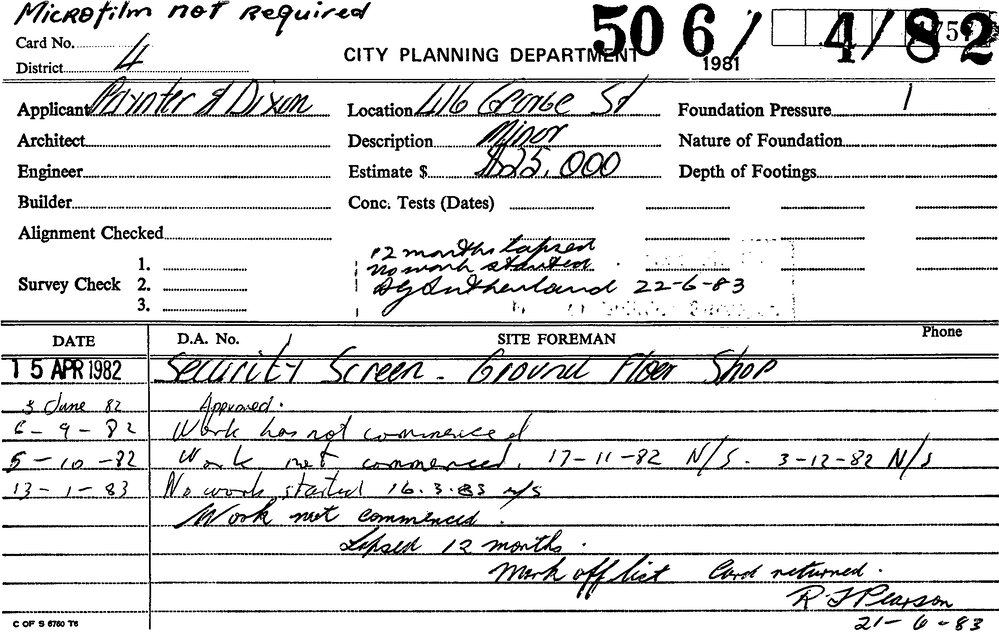 Microfilm not Required
506/ 4/82
Card No.
District 4
CITY PLANNING DEPARTMENT
1981
Applicant Paynter & Dixon Location 416 George St Foundation Pressure
Architect Description Minor Nature of Foundation
Engineer Estimate $ $25,000 Depth of Footings
Builder Conc. Tests (Dates)
Alignment Checked
12 months lapsed
no work started
Survey Check 1. 2. 3.
Sutherland 22-6-83
DATE D.A. No. SITE FOREMAN Phone
15 APR 1982 Security Screen - Ground Floor Shop
3 June 82 Approved.
6-9-82 Work has not commenced
5-10-82 Work not commenced. 17-11-82 N/S. 3-12-82 N/S
13-1-83 No work started 16.3.83 N/S
Work not commenced.
Lapsed 12 months.
Mark off list Card returned.
R J Pearson
21-6-83
C OF S 6760 T6